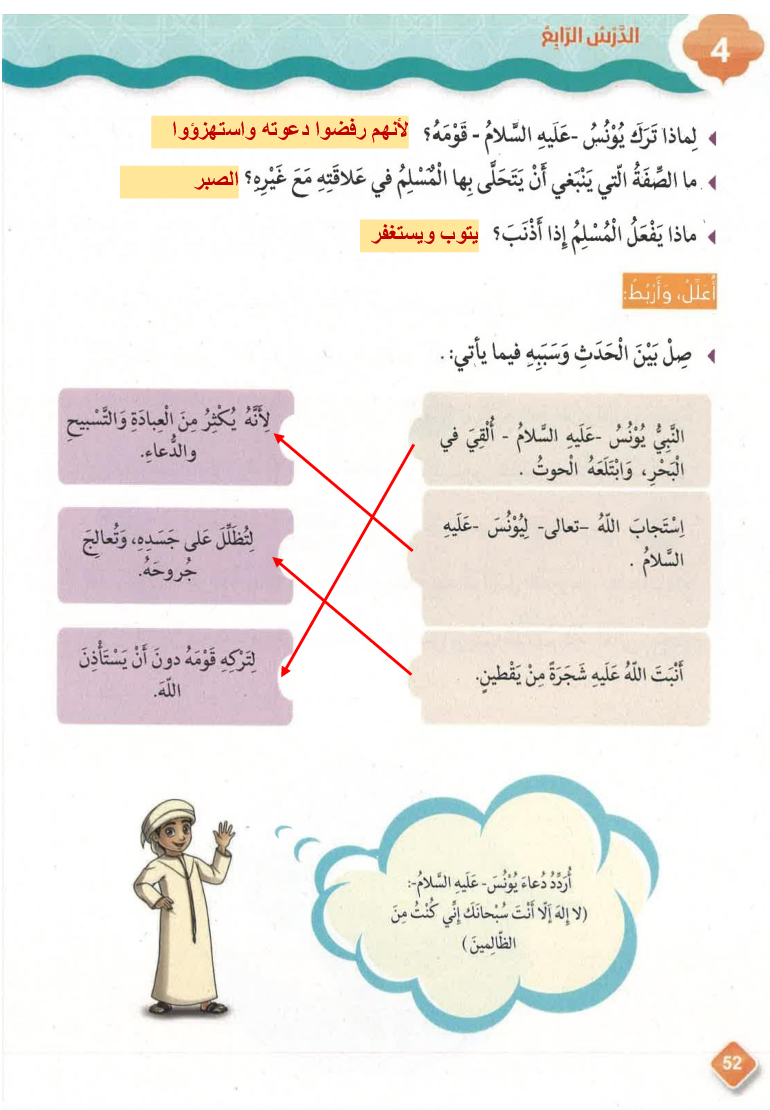 الدَّرْسُ الرّابِعُ
4
لِماذا تَرَكَ يُوْنُسُ -عَلَيهِ السَّلامُ - قَوْمَهُ؟ لأنهم رفضوا دعوته واستهزؤوا
ما الصِّفَةُ الّتي يَنْبَغي أَنْ يَتَحَلَّى بِها الْمُسْلِمُ في عَلاقَتِهِ مَعَ غَيْرِهِ؟ الصبر
ماذا يَفْعَلُ الْمُسْلِمُ إِذا أَذْنَبَ؟ يتوب ويستغفر
أُعَلِّلُ، وَأَرْبُطُ:
صِلْ بَيْنَ الْحَدَثِ وَسَبَبِهِ فيما يأتي: .
النَّبِيُّ يُوْنُسُ -عَلَيهِ السَّلامُ - أُلْقِيَ في
الْبَحْرِ، وَابْتَلَعَهُ الْحوتُ .
اِسْتَجابَ اللّهُ -تعالى- لِيُوْنُسَ -عَلَيهِ
السَّلامُ .
أَنْبَتَ اللّهُ عَلَيهِ شَجَرَةً مِنْ يَقْطينٍ.
لِأَنَّهُ يُكْثِرُ مِنَ الْعِبادَةِ وَالتَّسْبيحِ
والدُّعاءِ.
لِتُظَلِّلَ عَلى جَسَدِهِ، وَتُعالِجَ
جُروحَهُ.
لِتَرْكِهِ قَوْمَهُ دونَ أَنْ يَسْتَأْذِنَ
اللّهَ.
أُرَدِّدُ دُعاءَ يُوْنُسَ- عَلَيهِ السَّلامُ-:
(لا إلهَ إلّا أَنْتَ سُبْحانَك إنِّي كُنْتُ مِنَ
الظّالِمينَ)
52